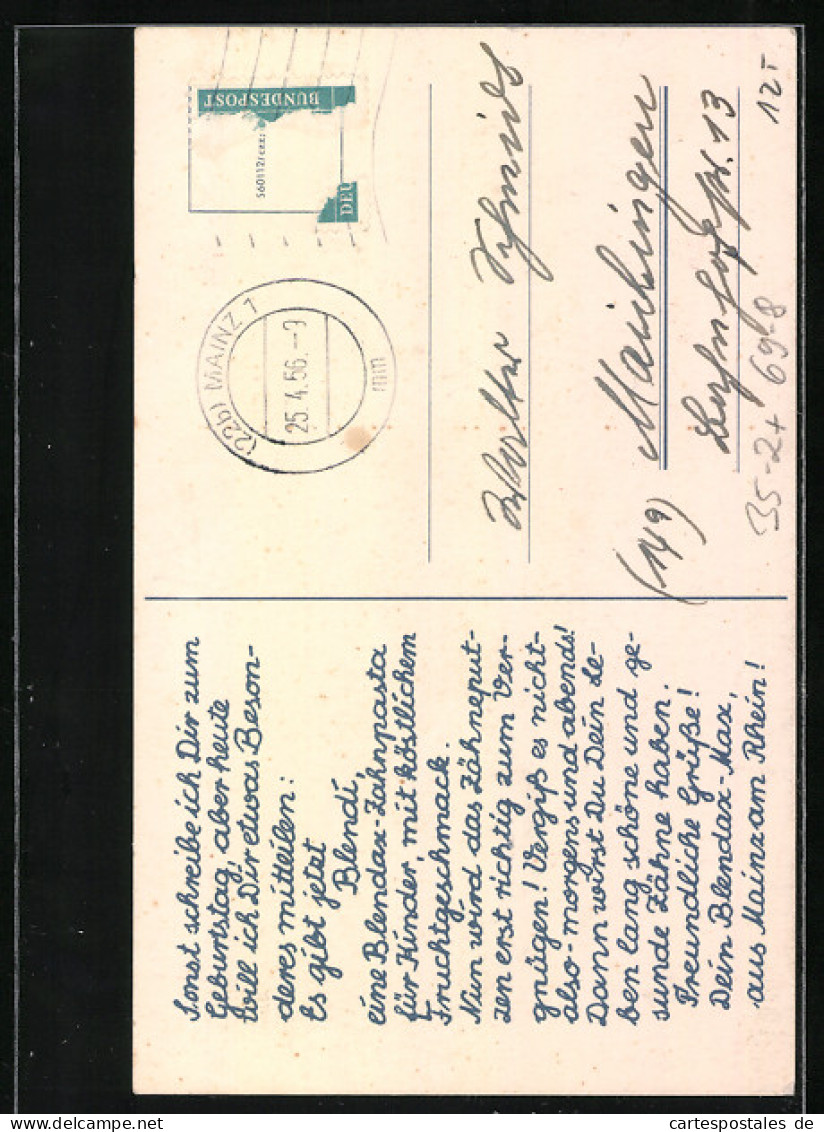 Sonst schreibe ich Dir zum
Geburtstag, aber heute
will ich Dir etwas Beson-
deres mitteilen:
Es gibt jetzt
Blendi,
eine Blendax-Zahnpasta
für Kinder, mit köstlichem
Fruchtgeschmack.
Nun wird das Zähneput-
zen erst richtig zum Ver-
gnügen! Vergiß es nicht-
also-morgens und abends!
Dann wirst Du Dein Le-
ben lang schöne und ge-
sunde Zähne haben.
Freundliche Grüße!
Dein Blendax-Max,
aus Mainz am Rhein!
(22b) MAINZ 1
25.4.56.-9
mn
DEU
BUNDESPOST
Walter Schmid
(14a) Maichingen
13
35-2+ 69-8
12T
cartespostales de
www.cartespostales.de